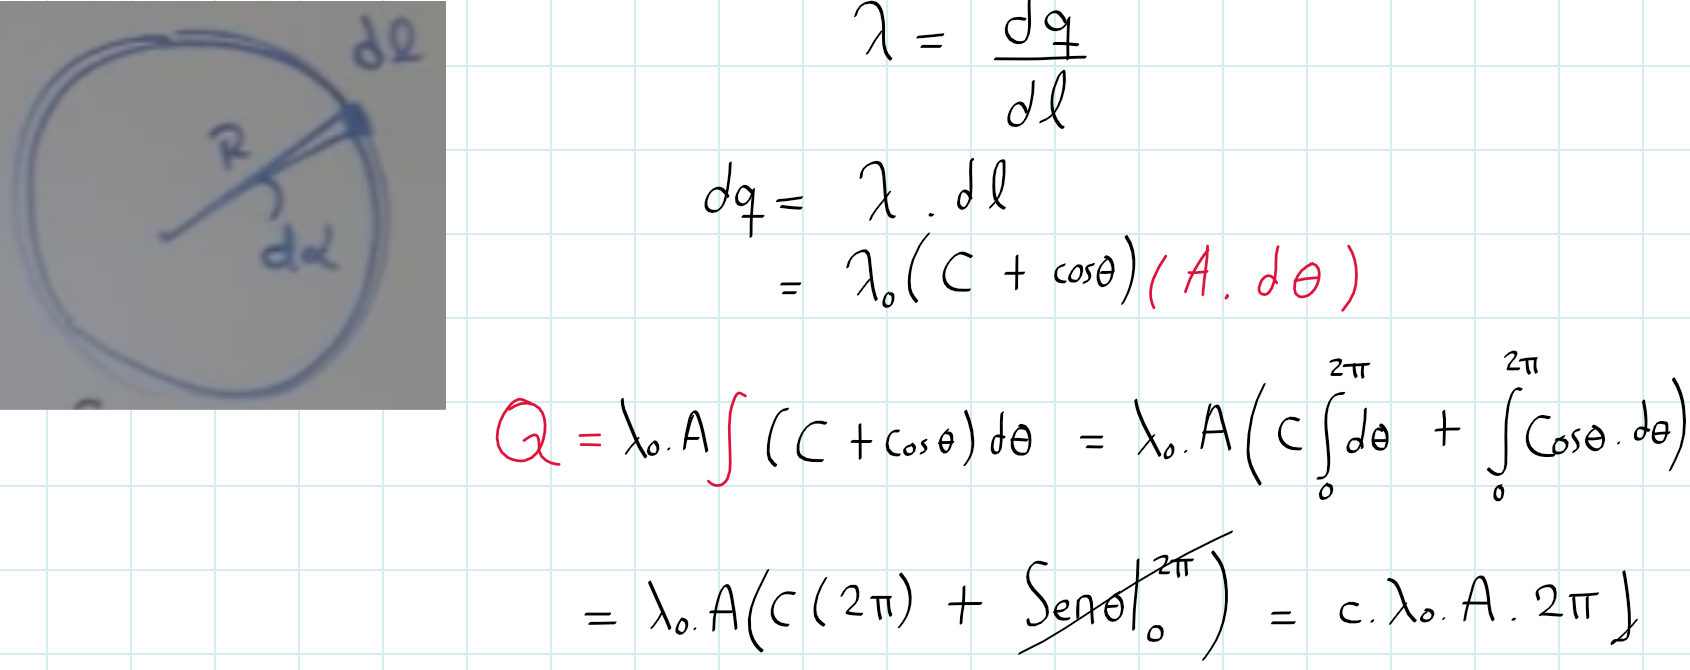 dl
R
dα
λ = dq / dl
dq = λ . dl
= λ₀ ( C + cosθ ) ( A . dθ )
Q = λ₀ . A ∫ ( C + cosθ ) dθ = λ₀ . A ( C ∫₀^2π dθ + ∫₀^2π Cosθ . dθ )
= λ₀ . A ( C ( 2π ) + Senθ |₀^2π ) = c . λ₀ . A . 2π ⌋